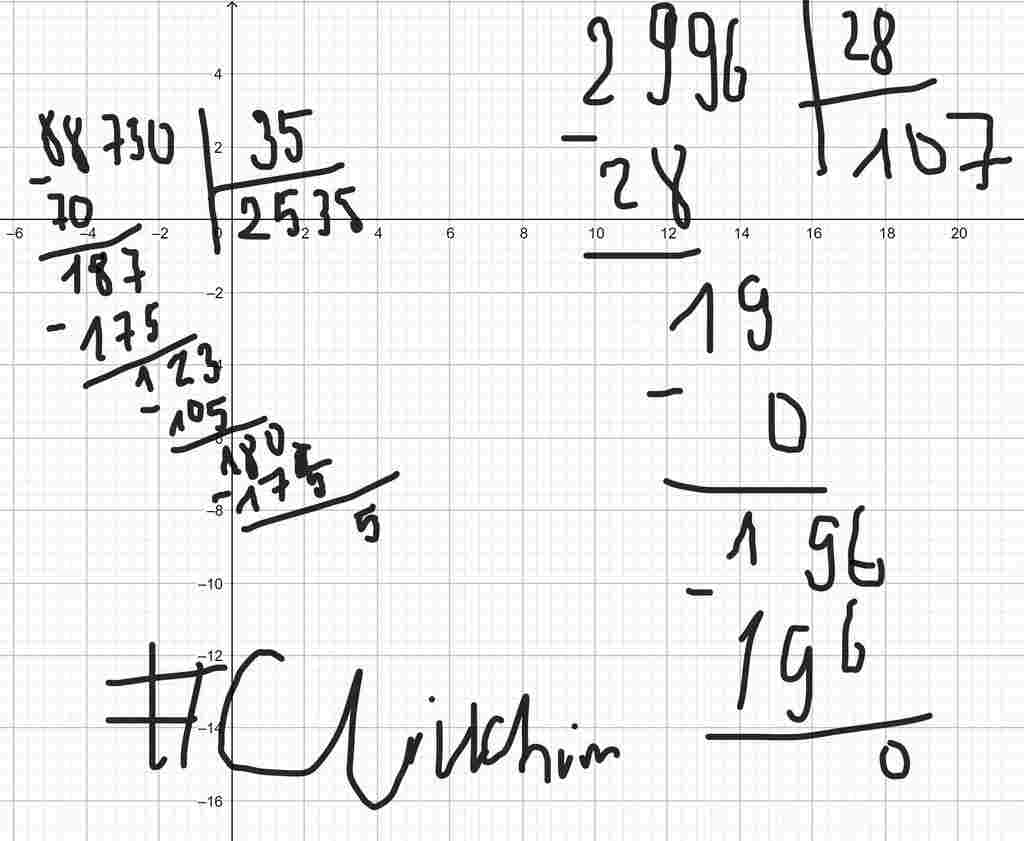 88730 35
- 70 2535
187
- 175
123
- 105
180
- 175
5
2996 28
- 28 107
19
- 0
196
- 196
0
4
2
0
-6 -4 -2 2 4 6 8 10 12 14 16 18 20
-2
-4
-6
-8
-10
-12
-14
-16